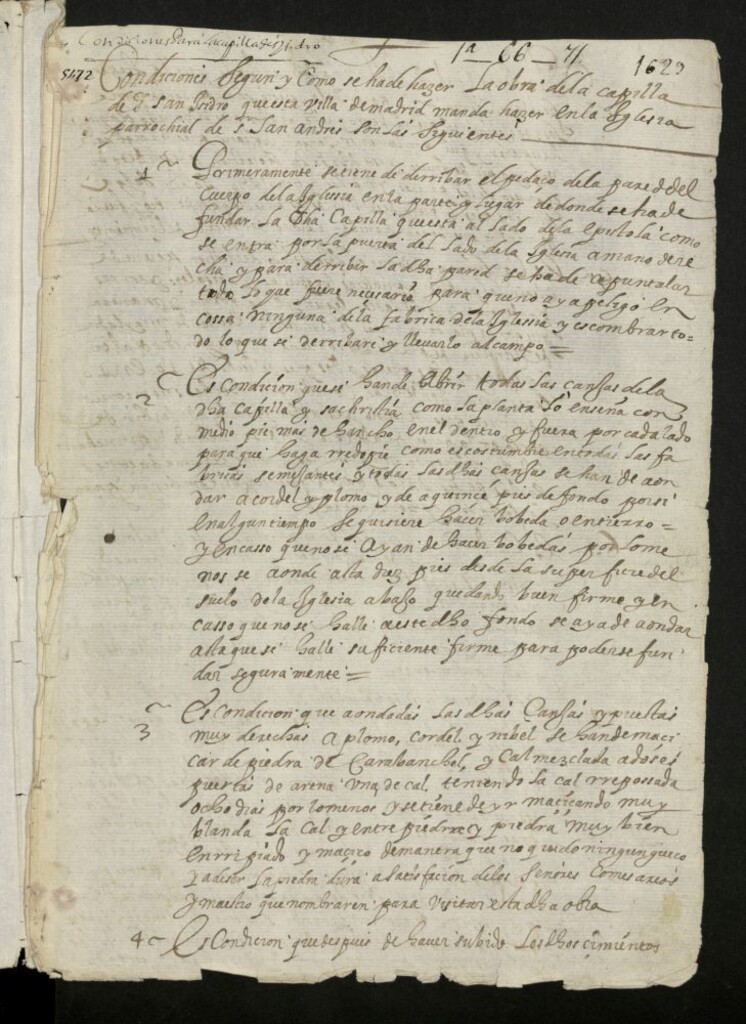 Condiciones Para la capilla de S. isidro
1ª — 66 — 71
1629
5472
Condiciones Segun y Como se ha de hazer La obra de la capilla
de S. san Isidro que esta Villa de madrid manda hazer en la Iglesia
parrochial de S. San andres son las Siguientes
1 Primeramente se tiene de derribar el pedaço de la pared del
cuerpo de la Iglesia en la parte y lugar de donde se ha de
fundar La dha Capilla que esta al lado de la epistola como
se entra por la puerta del lado de la Iglesia a mano dere
cha y para derribar la dha pared se ha de apuntalar
todo lo que fuere necessario para que no aya peligro en
cossa ninguna de la fabrica de la Iglesia y escombrar to=
do lo que se derribare y llevarlo al campo =
2 Es condicion que se han de Abrir todas las canjas de la
dha capilla y sachristia como la planta lo enseña con
medio pie mas de hancho en el dentro y fuera por cada lado
para que haga rredopie como es costumbre en todas las fa
bricas semejantes y todas las dhas canjas se han de aon
dar a cordel y plomo y de a quince pies de fondo por si
en algun tiempo se quisiere hacer bobeda o entierro =
y en casso que no se ayan de hacer bobedas por lo me
nos se aonde asta diez pies desde la superficie del
suelo de la Iglesia abaxo quedando buen firme y en
casso que no se halle a este dho fondo se aya de aondar
asta que se halle suficiente firme para poderse fun
dar segura mente =
3 Es condicion que aondadas las dhas Canjas y puestas
muy derechas a plomo, cordel y nibel se han de maci
car de piedra de Carabanchel, y Cal mezclada a dos es
puertas de arena una de cal, teniendo la cal rreposada
ocho dias por lo menos y se tiene de yr maciçando muy
blanda la cal y entre piedra y piedra muy bien
enrripiado y maciço de manera que no quede ningun gueco
y a de ser la piedra dura a satisfacion de los Señores Comissarios
y maestro que nombraren para visitar esta dha obra
4 Es Condicion que despues de haver subido Los dhos çimientos